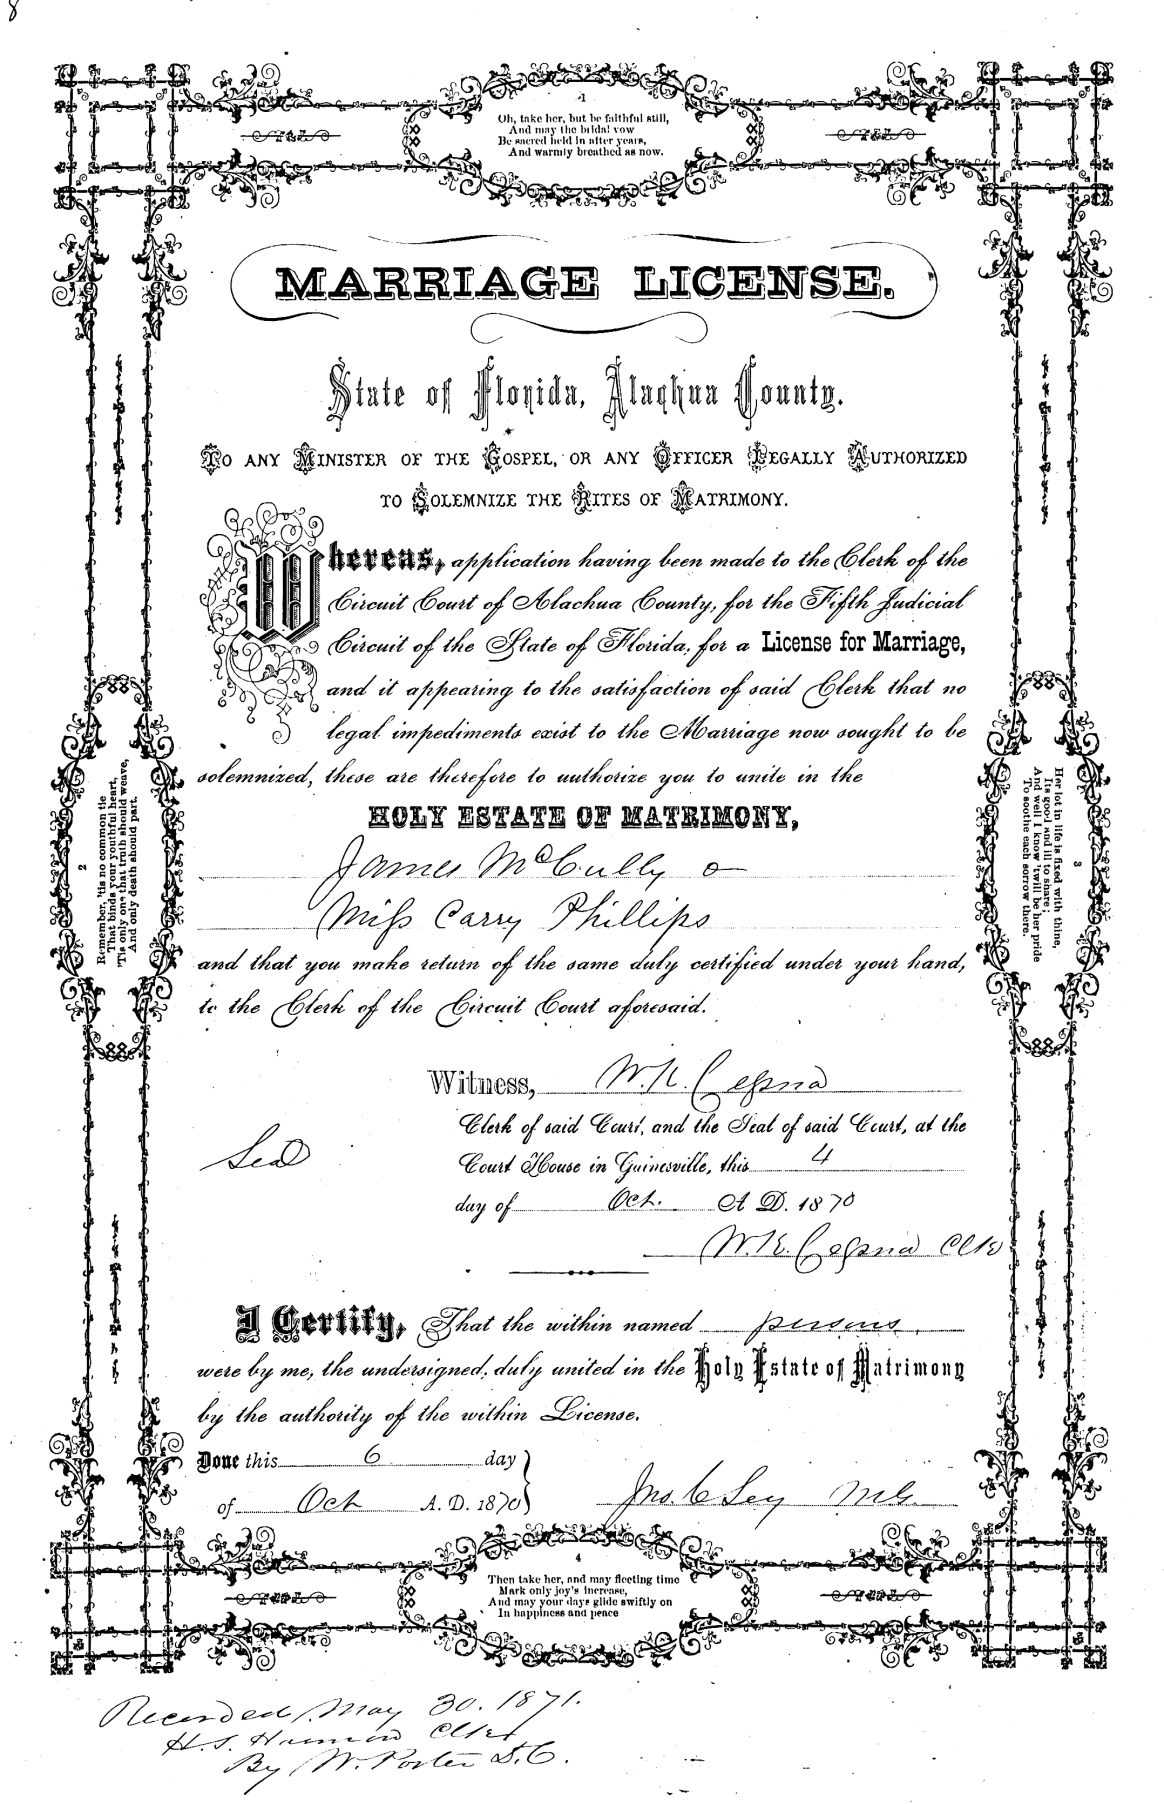 8
1
Oh, take her, but be faithful still,
And may the bridal vow
Be sacred held in after years,
And warmly breathed as now.
MARRIAGE LICENSE.
State of Florida, Alachua County.
TO ANY MINISTER OF THE GOSPEL, OR ANY OFFICER LEGALLY AUTHORIZED
TO SOLEMNIZE THE RITES OF MATRIMONY.
Whereas, application having been made to the Clerk of the
Circuit Court of Alachua County, for the Fifth Judicial
Circuit of the State of Florida, for a License for Marriage,
and it appearing to the satisfaction of said Clerk that no
legal impediments exist to the Marriage now sought to be
solemnized, these are therefore to authorize you to unite in the
HOLY ESTATE OF MATRIMONY,
James McCully &
Miss Carry Phillips
and that you make return of the same duly certified under your hand,
to the Clerk of the Circuit Court aforesaid.
Witness, W. K. Cessna
Clerk of said Court, and the Seal of said Court, at the
Seal
Court House in Gainesville, this 4
day of Oct. A. D. 1870
W. K. Cessna Clk
I Certify, That the within named persons
were by me, the undersigned, duly united in the Holy Estate of Matrimony
by the authority of the within License.
Done this 6 day
of Oct A. D. 1870
Jno. C Ley M.G.
2
Remember, 'tis no common tie
That binds your youthful heart,
'Tis only one that truth should weave,
And only death should part.
3
Her lot in life is fixed with thine,
Its good and ill to share;
And well I know 'twill be her pride
To soothe each sorrow there.
4
Then take her, and may fleeting time
Mark only joy's increase,
And may your days glide swiftly on
In happiness and peace
Recorded May 30. 1871.
H. S. Clk
By W. Porter D.C.